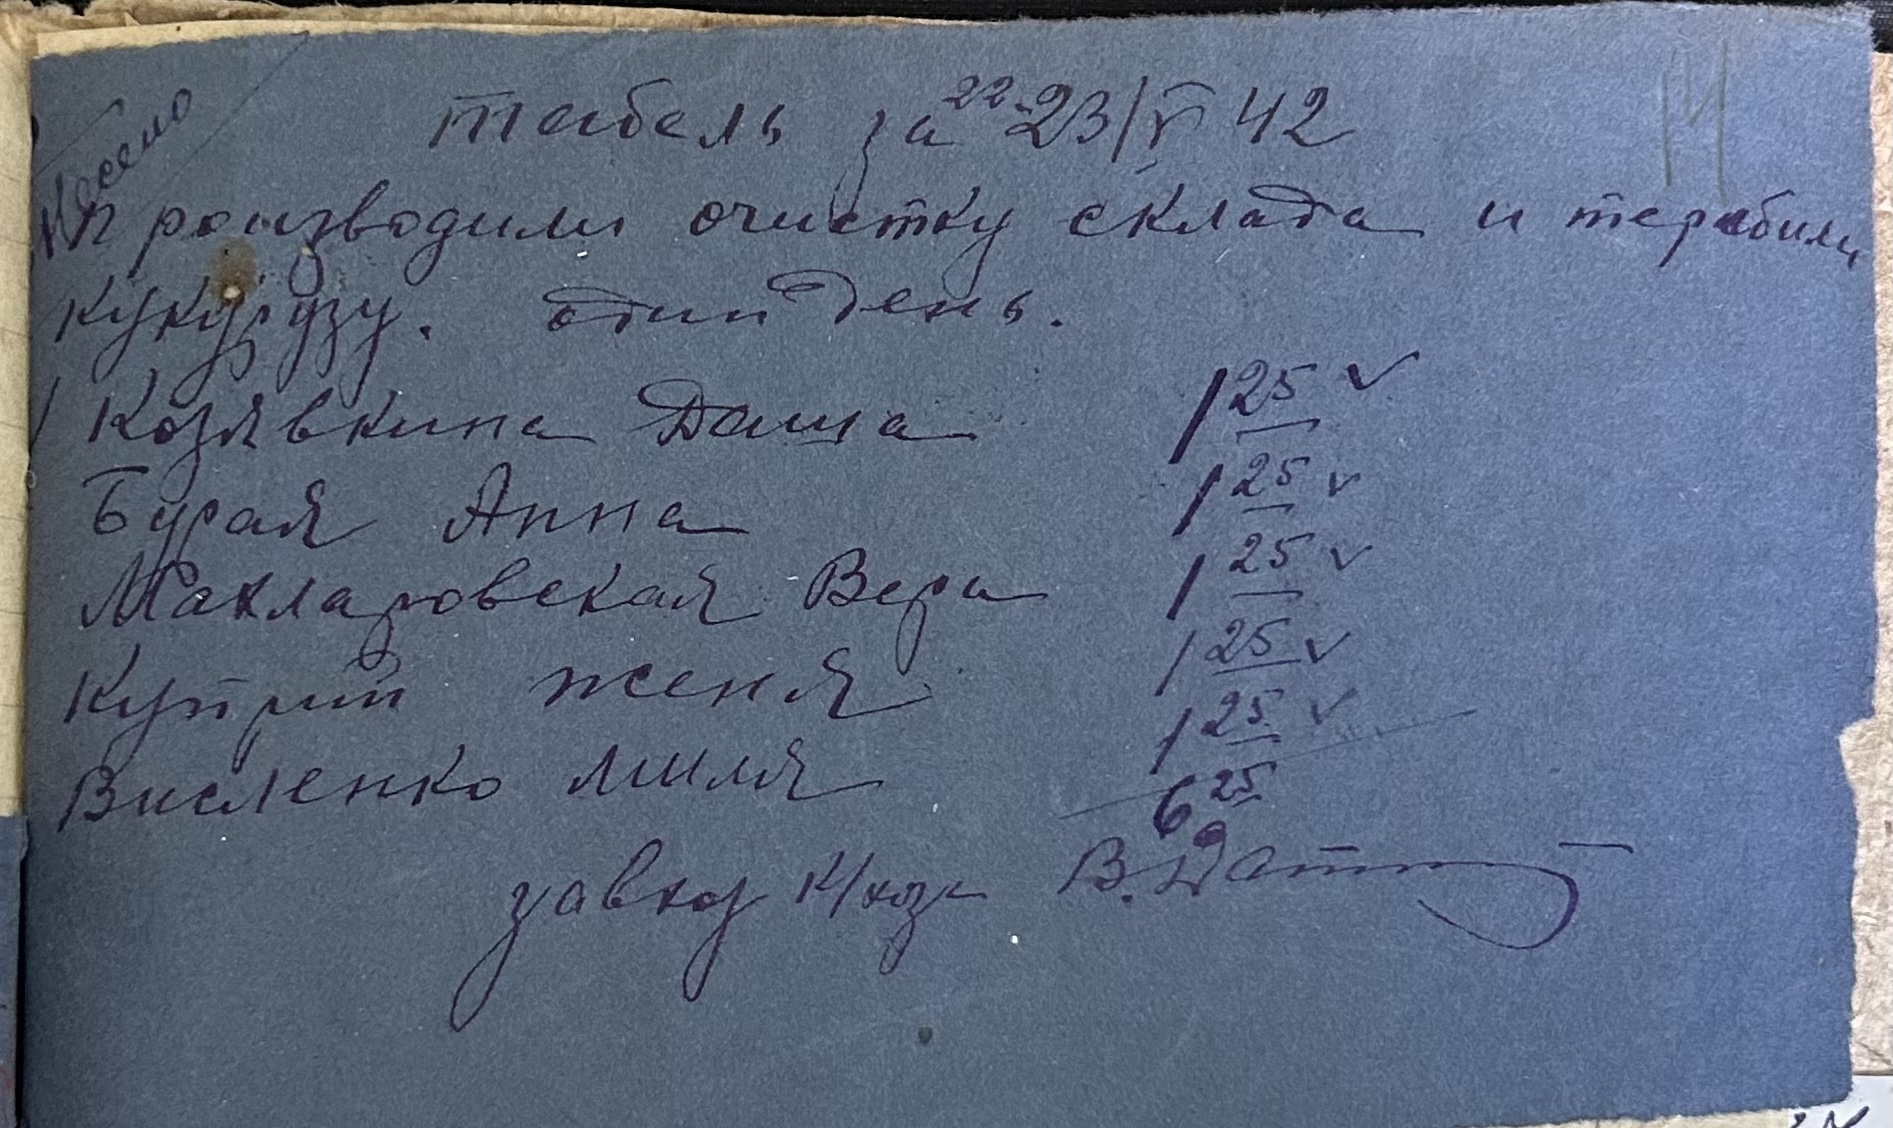 несено
табель за 22-23/V 42
производили очистку склада и теребили
кукурузу. один день.
Козявкина Даша 1 25 ✓
Бурая Анна 1 25 ✓
Макларовская Вера 1 25 ✓
Куприй женя 1 25 ✓
Висленко миля 1 25 ✓
6 25
завхоз к/хоза В.